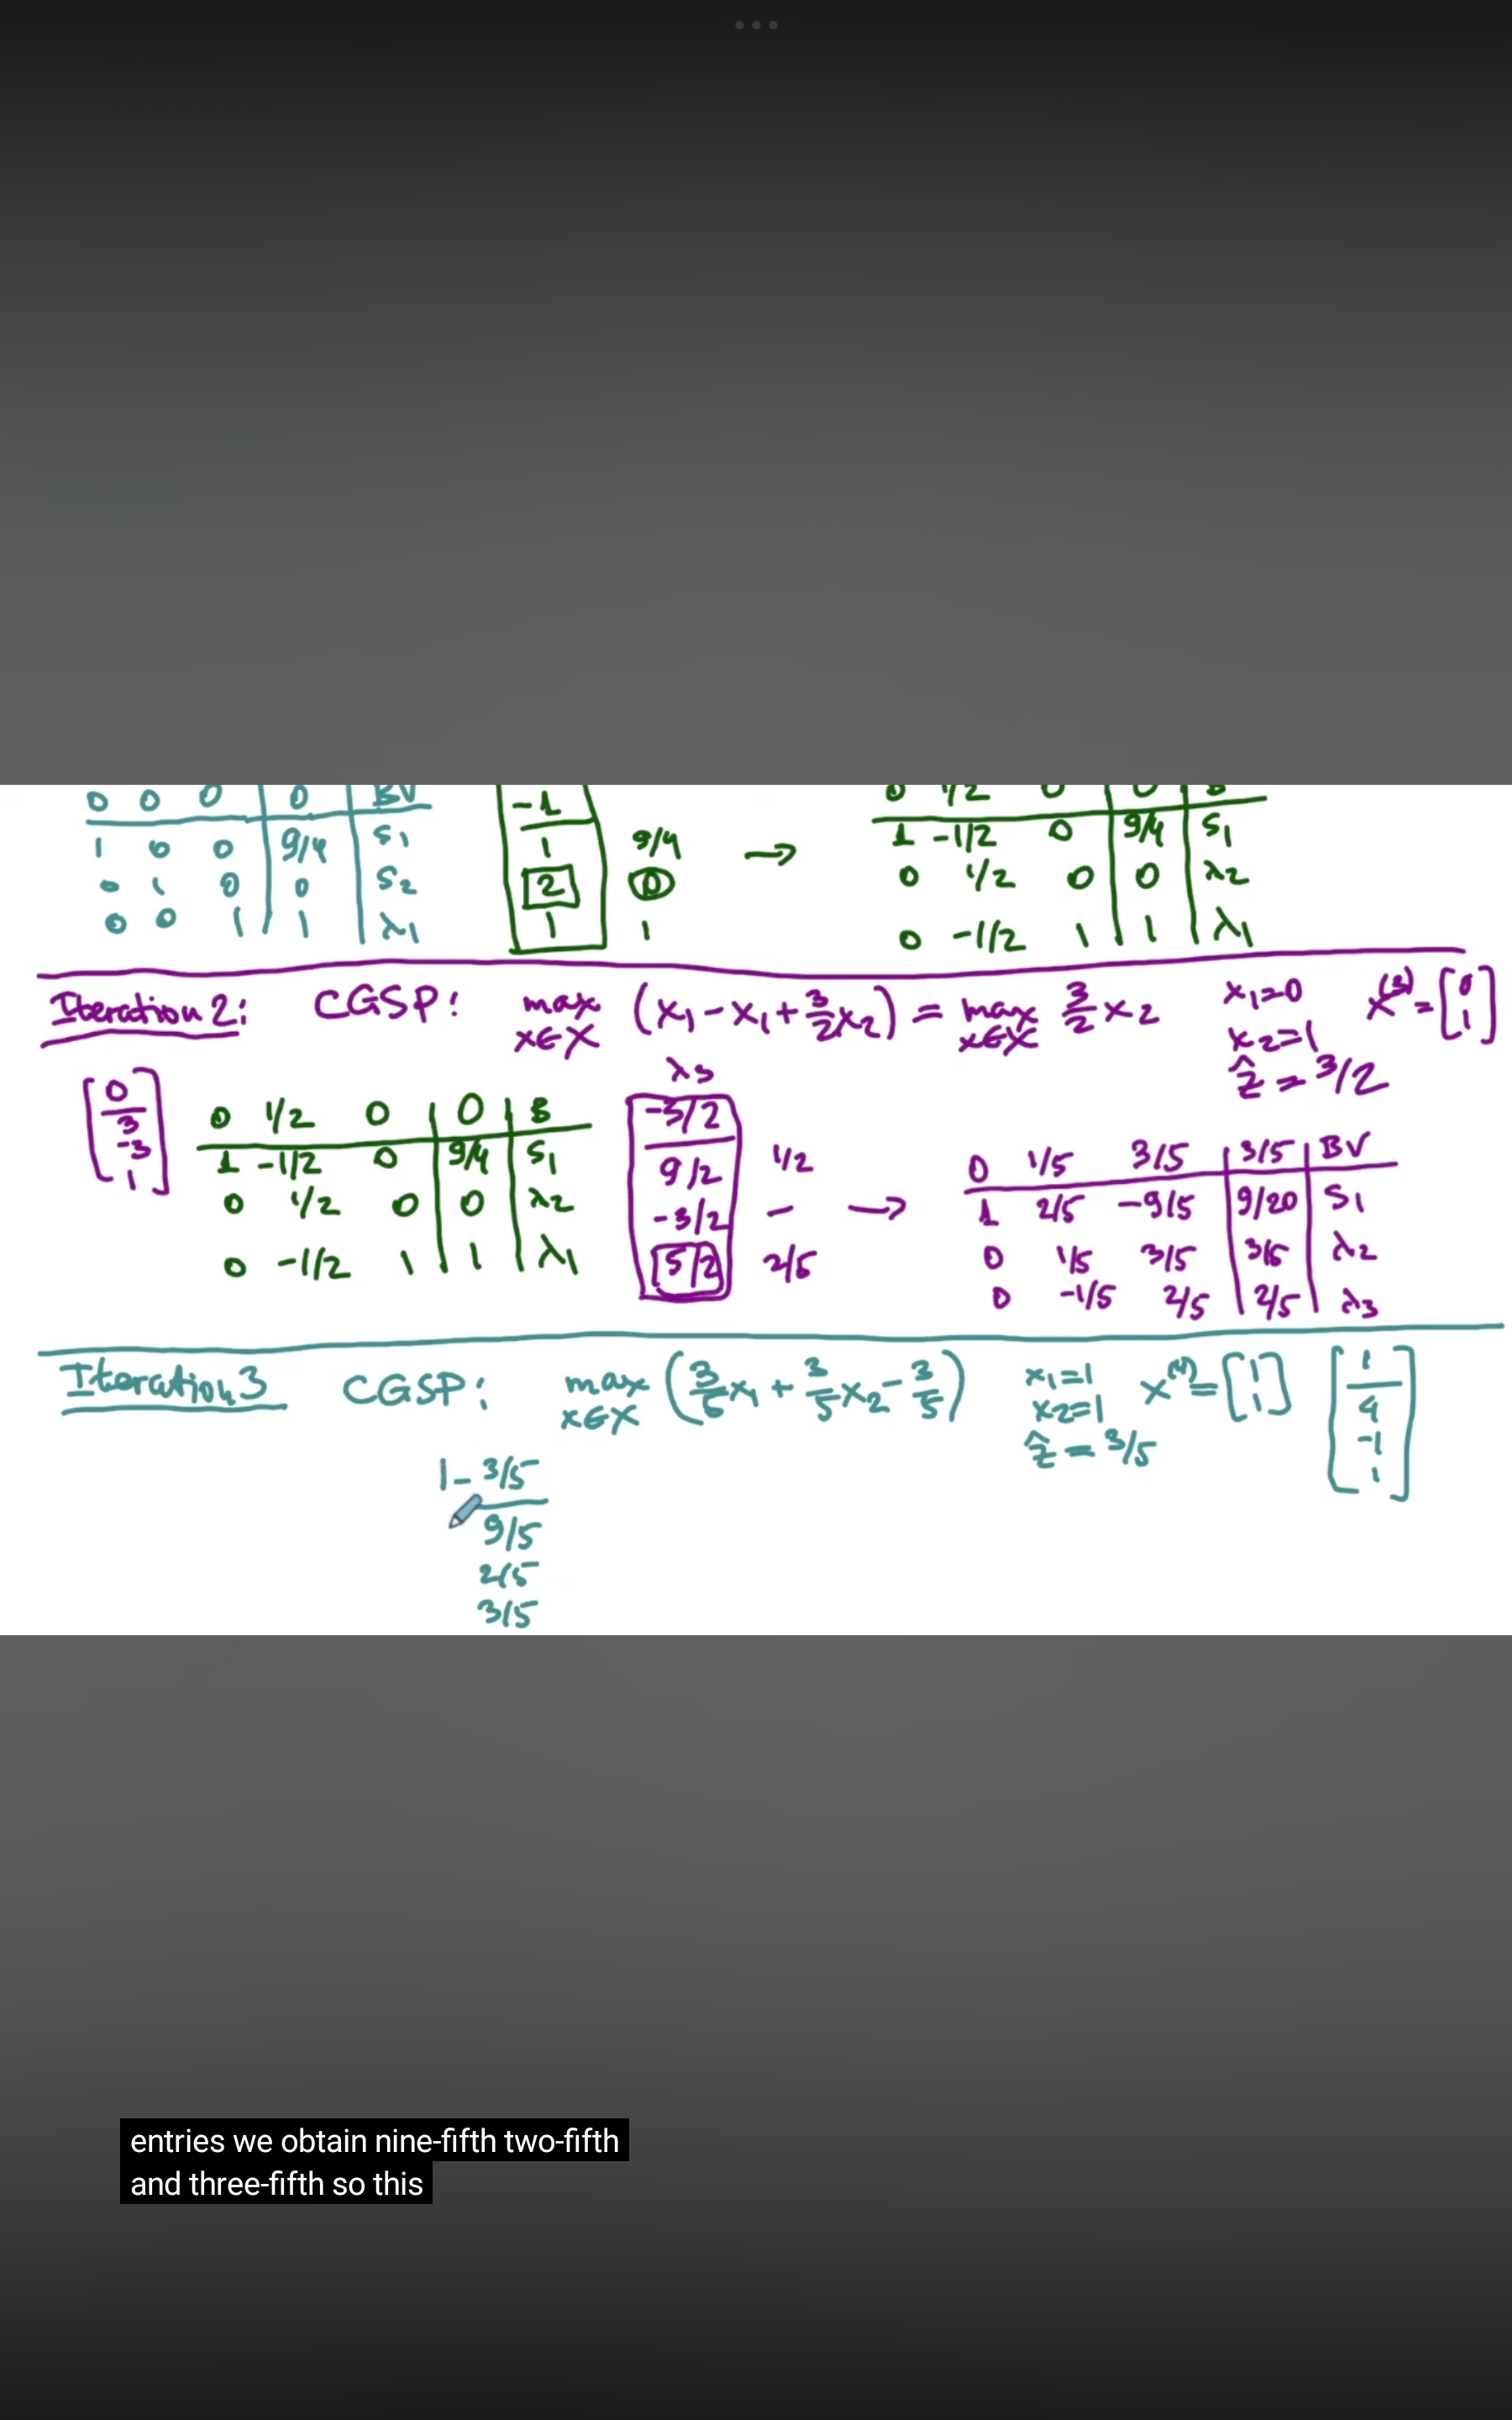 0 0 0 | 0 | BV
1 0 0 | 9/4 | s₁
0 1 0 | 0 | s₂
0 0 1 | 1 | λ₁
-1
1 9/4
2 0
1 1
→
0 1/2 0 | 0 | B
1 -1/2 0 | 9/4 | s₁
0 1/2 0 | 0 | λ₂
0 -1/2 1 | 1 | λ₁
Iteration 2: CGSP: max x∈X (x₁ - x₁ + 3/2 x₂) = max x∈X 3/2 x₂
x₁=0
x₂=1
ẑ = 3/2
x⁽³⁾ = [0 1]
[0 3 -3 1]
0 1/2 0 | 0 | B
1 -1/2 0 | 9/4 | s₁
0 1/2 0 | 0 | λ₂
0 -1/2 1 | 1 | λ₁
λ₃
-3/2
9/2 1/2
-3/2 -
5/2 2/5
→
0 1/5 3/5 | 3/5 | BV
1 2/5 -9/5 | 9/20 | s₁
0 1/5 3/5 | 3/5 | λ₂
0 -1/5 2/5 | 2/5 | λ₃
Iteration 3 CGSP: max x∈X (3/5 x₁ + 3/5 x₂ - 3/5)
x₁=1
x₂=1
ẑ = 3/5
x⁽⁴⁾ = [1 1]
[1 4 -1 1]
1 - 3/5
9/5
2/5
3/5
entries we obtain nine-fifth two-fifth
and three-fifth so this